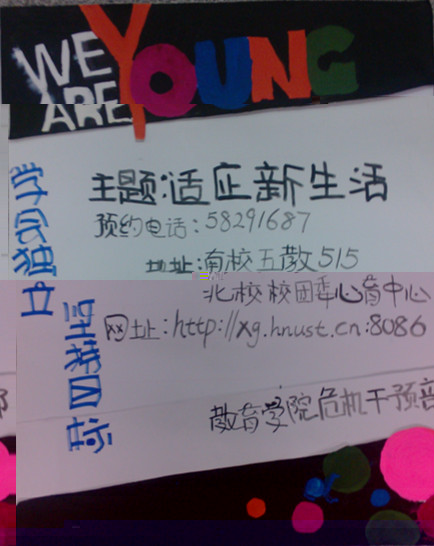 WE ARE YOUNG
主题:适应新生活
预约电话:58291687
地址:南校五教515
北校校团委心育中心
网址:http://xg.hnust.cn:8086
教育学院危机干预部
学会独立
坚持目标